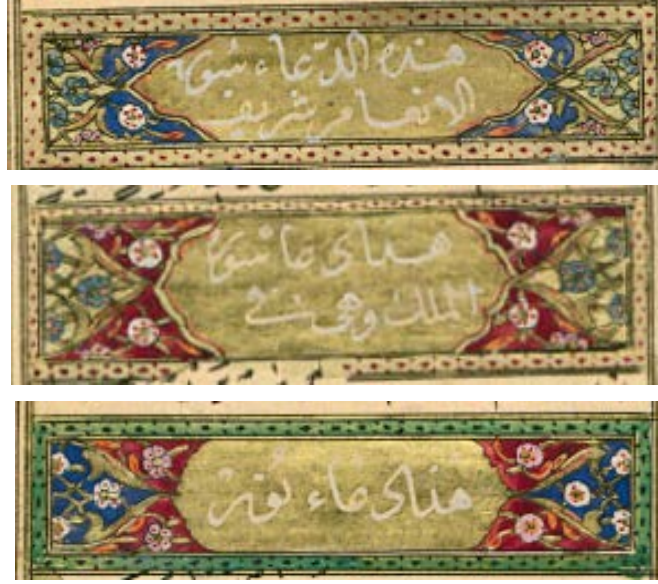 هذه الدعاء سورة
الانعام شريف
هذا دعا سورة
الملك وهى
هذا دعاء توبه